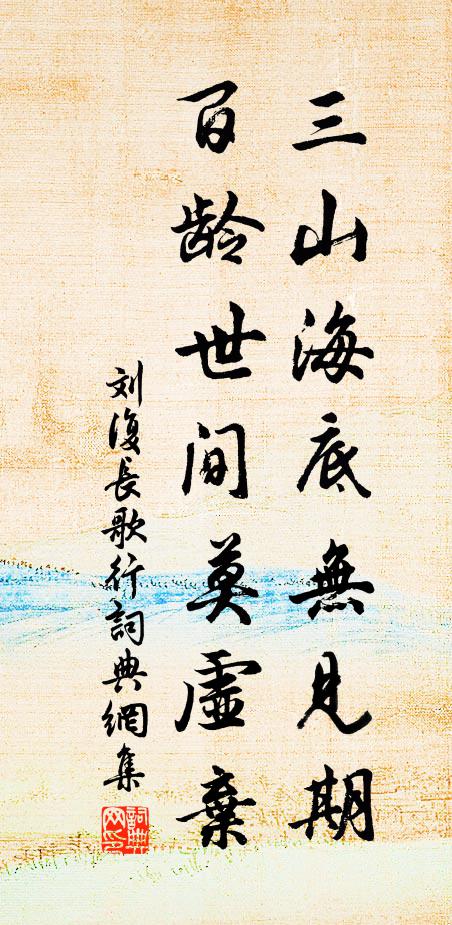 三山海底無見期
百龄世間莫虛棄
刘復長歌行詞典網集
詞典网